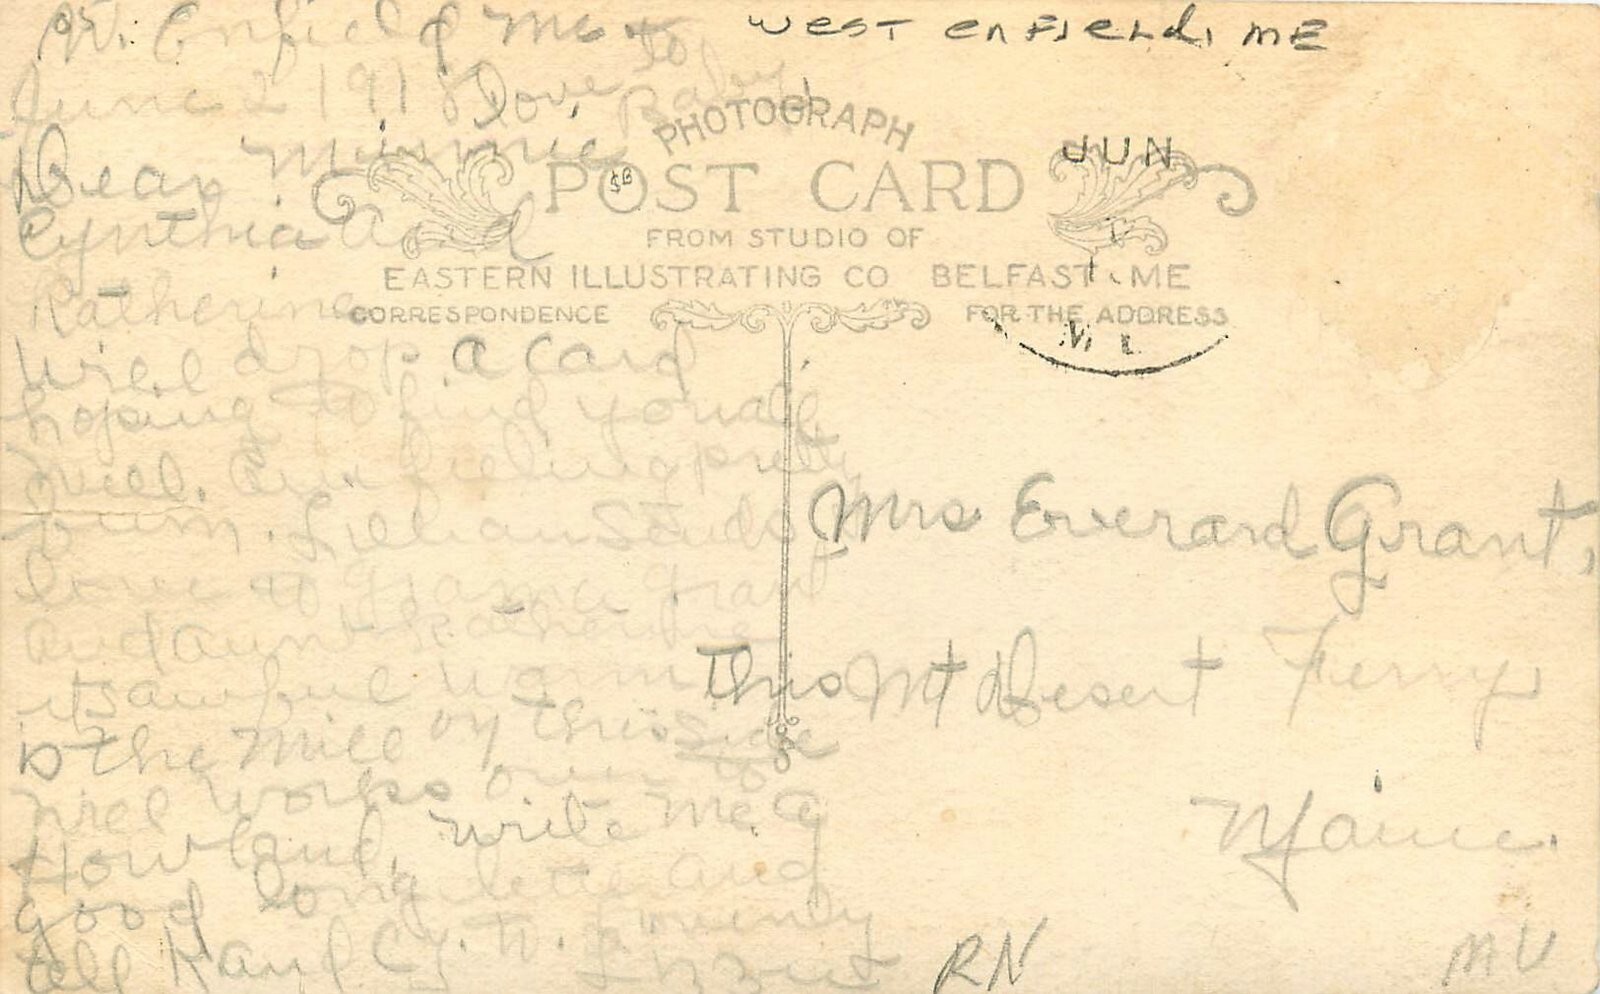 W. Enfield Me
June 2 1918 Love to Baby
Dear Minnie
Cynthia and
Katherine
Will drop a card
hoping to find you all
well. Am feeling pretty
bum. Lillian Sends
love to Grama Grant
and aunt Katherine
its awful warm
is the Mill by this side
works over
Howland, write me a
good long letter and
tell K and Cy. to
WEST ENFIELD, ME
PHOTOGRAPH
POST CARD
FROM STUDIO OF
EASTERN ILLUSTRATING CO BELFAST, ME
CORRESPONDENCE
FOR THE ADDRESS
JUN
Mrs Everard Grant,
This Mt Desert Ferry
Maine.
RN
MU